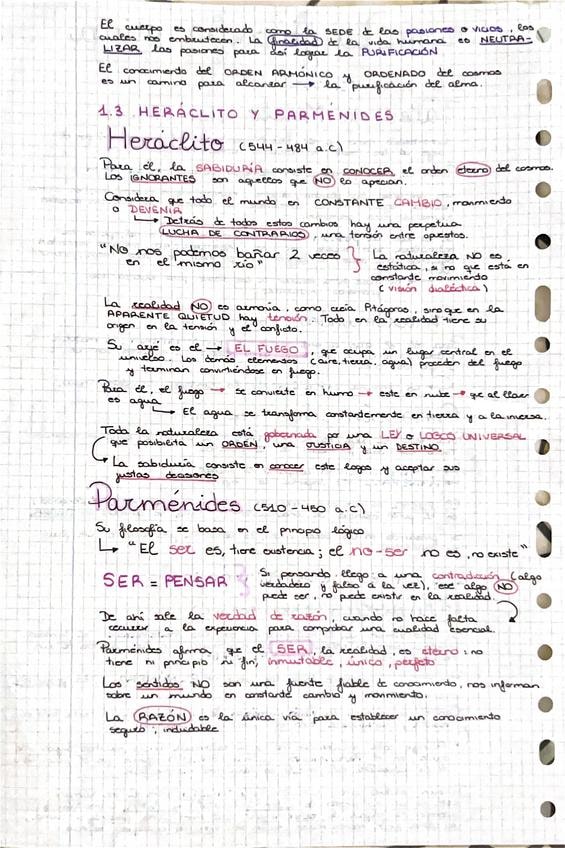 El cuerpo es considerado como la SEDE de las pasiones o vicios, los
cuales nos embrutecen. La finalidad de la vida humana es NEUTRA-
LIZAR las pasiones para así lograr la PURIFICACIÓN
El conocimiento del ORDEN ARMÓNICO y ORDENADO del cosmos
es un camino para alcanzar → la purificación del alma.
1.3 HERÁCLITO Y PARMÉNIDES
Heráclito (544-484 a.c)
Para él, la SABIDURÍA consiste en CONOCER el orden eterno del cosmos.
Los IGNORANTES son aquellos que NO lo aprecian.
Considera que todo el mundo en CONSTANTE CAMBIO, movimiento
o DEVENIR
↳ Detrás de todos estos cambios hay una perpetua
LUCHA DE CONTRARIOS, una tensión entre opuestos.
"No nos podemos bañar 2 veces
en el mismo río"
La naturaleza NO es
estática, si no que está en
constante movimiento
(visión dialéctica)
La realidad NO es armonía, como creía Pitágoras, sino que en la
APARENTE QUIETUD hay tensión. Todo en la realidad tiene su
origen en la tensión y el conflicto.
Su arjé es el → EL FUEGO, que ocupa un lugar central en el
universo. Los demás elementos (aire, tierra, agua) proceden del fuego
y terminan convirtiéndose en fuego.
Para él, el fuego → se convierte en humo → este en nube → que al llover
es agua
↳ El agua, se transforma constantemente en tierra y a la inversa.
Toda la naturaleza está gobernada por una LEY o LOGOS UNIVERSAL
que posibilita un ORDEN, una JUSTICIA y un DESTINO.
↳ La sabiduría consiste en conocer este logos y aceptar sus
justas decisiones
Parménides (510-450 a.c)
Su filosofía se basa en el principio lógico
↳ "El ser es, tiene existencia; el no-ser no es, no existe"
SER = PENSAR
Si pensando, llego a una contradicción (algo
verdadero y falso a la vez), "ese" algo NO
puede ser, no puede existir en la realidad.
De ahí sale la verdad de razón, cuando no hace falta
recurrir a la experiencia para comprobar una cualidad esencial.
Parménides afirma que el SER, la realidad, es eterno: no
tiene ni principio ni fin, inmutable, único, perfeto
Los sentidos NO son una fuente fiable de conocimiento, nos informan
sobre un mundo en constante cambio y movimiento.
La RAZÓN es la única vía para establecer un conocimiento
seguro, indudable